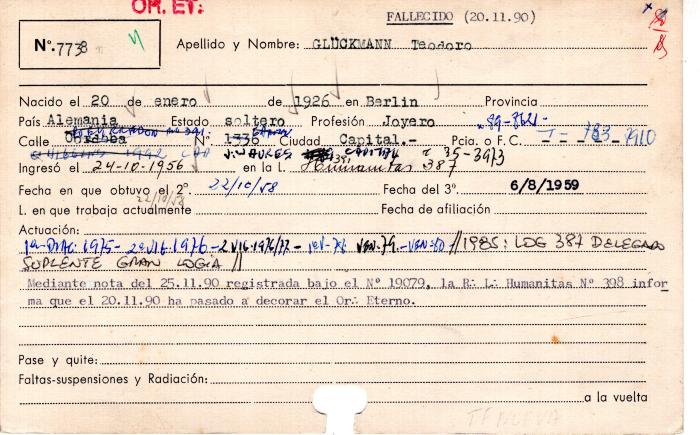 OR. ET.
FALLECIDO (20.11.90)
Nº. 7738
Apellido y Nombre: GLÜCKMANN Teodoro
Nacido el 20 de enero de 1926 en Berlin Provincia
País Alemania Estado soltero Profesión Joyero
Calle Córdoba Nº 1336 Ciudad Capital.- Pcia. o F.C.
J.M. AURES CAPITAL 35-3973
Ingresó el 24-10-1956 en la L. Humanitas 387
Fecha en que obtuvo el 2º. 22/10/58 Fecha del 3º. 6/8/1959
22/10/58
L. en que trabaja actualmente Fecha de afiliación
Actuación:
1975- 2º VIG. 1976- 2 VIG. 1976/77 - VEN. 79. - VEN. 80 // 1985: LOG 387 DELEGADO
SUPLENTE GRAN LOGIA //
Mediante nota del 25.11.90 registrada bajo el Nº 19079, la R∴ L∴ Humanitas Nº 398 infor
ma que el 20.11.90 ha pasado a decorar el Or∴ Eterno.
Pase y quite:
Faltas-suspensiones y Radiación:
a la vuelta